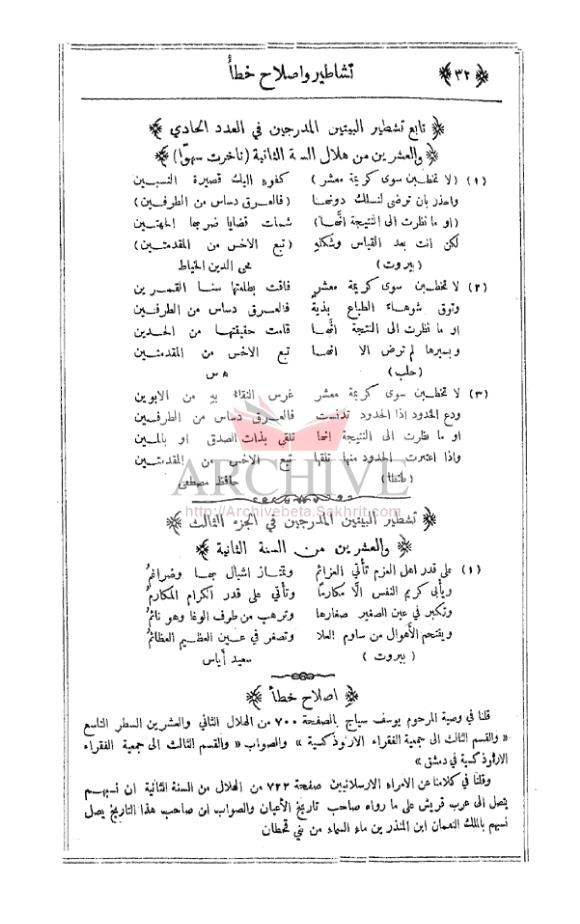 ﴿ ٣٢ ﴾ تشاطير واصلاح خطأ
﴿ تابع تشطير البيتين المدرجين في العدد الحادي ﴾
﴿ والعشرين من هلال السنة الثانية (تأخرت سهوًا) ﴾
(١) (لا تخطبن سوى كريمة معشر) كفوء اليك قصيرة النسبين
واحذر بان ترضى لنسلك دونها (فالعرق دساس من الطرفين)
(او ما نظرت الى النتيجة انَّها) شملت قضايا ضربها المهتين
لكن انت بعد القياس وشكله (تبع الاخس من المقدمتين)
(بيروت) محي الدين الخياط
(٢) لا تخطبن سوى كريمة معشر فاقت بطلعتها سنا القمرين
وتوق شوهاء الطباع بذيةً فالعرق دساس من الطرفين
او ما نظرت الى النتيجة انَّها قامت حقيقتها من الحدين
وبسيرها لم ترض الا انها تبع الاخس من المقدمتين
(حلب) ه س
(٣) لا تخطبن سوى كريمة معشر غرس النقاء به من الابوين
ودع الحدود إذا الحدود تدنست فالعرق دساس من الطرفين
او ما نظرت الى النتيجة انها تلقى بذات الصدق او بالمين
واذا اعتبرت الحدود منها تلقها تبع الاخس من المقدمتين
(طنطا) حافظ مصطفى
ARCHIVE
http://Archivebeta.Sakhrit.com
﴿ تشطير البيتين المدرجين في الجزء الثالث ﴾
﴿ والعشرين من السنة الثانية ﴾
(١) على قدر اهل العزم تأتي العزائم وتمتاز اشبال بها وضراغمُ
ويأبى كريم النفس الَّا مكارمًا وتأتي على قدر الكرام المكارمُ
وتكبر في عين الصغير صغارها وترهب من طرف الوفا وهو نائمُ
ويقتحم الأهوال من ساوم العلا وتصغر في عين العظيم العظائمُ
(بيروت) سعيد أياس
﴿ اصلاح خطأ ﴾
قلنا في وصية المرحوم يوسف سياج بالصفحة ٧٠٠ من الهلال الثاني والعشرين السطر التاسع
« والقسم الثالث الى جمعية الفقراء الارثوذكسية » والصواب « والقسم الثالث الى جمعية الفقراء
الارثوذكسية في دمشق »
وقلنا في كلامنا عن الامراء الارسلانيين صفحة ٧٢٣ من الهلال من السنة الثانية ان نسبهم
يتصل الى عرب قريش على ما رواه صاحب تاريخ الأعيان والصواب ان صاحب هذا التاريخ يصل
نسبهم بالملك النعمان ابن المنذر بن ماء السماء من بني قحطان